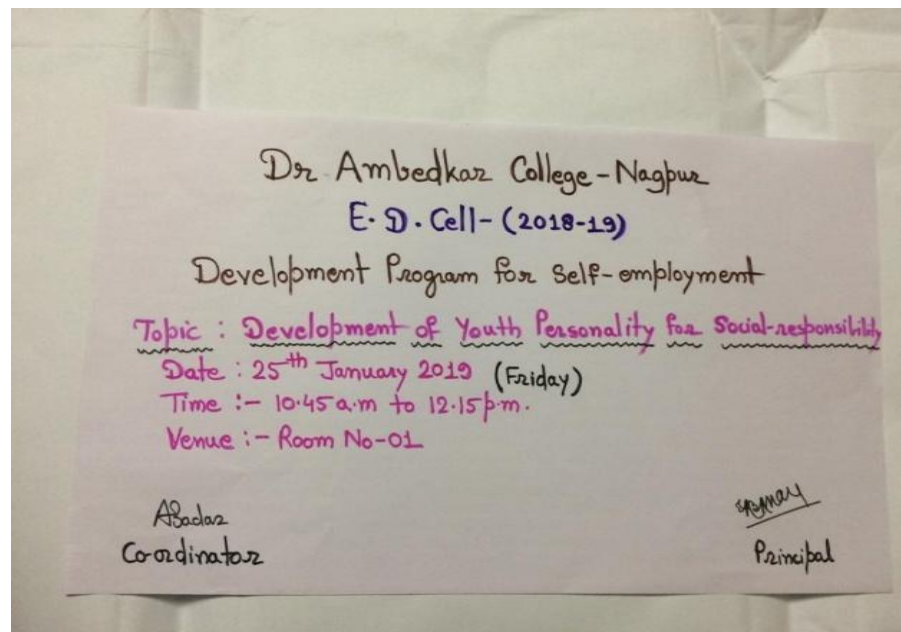 Dr Ambedkar College-Nagpur
E.D. Cell- (2018-19)
Development Program for Self-employment
Topic : Development of Youth Personality for Social-responsibility
Date : 25th January 2019 (Friday)
Time :- 10.45 a.m to 12.15 p.m.
Venue :- Room No-01
Co-ordinator
Principal